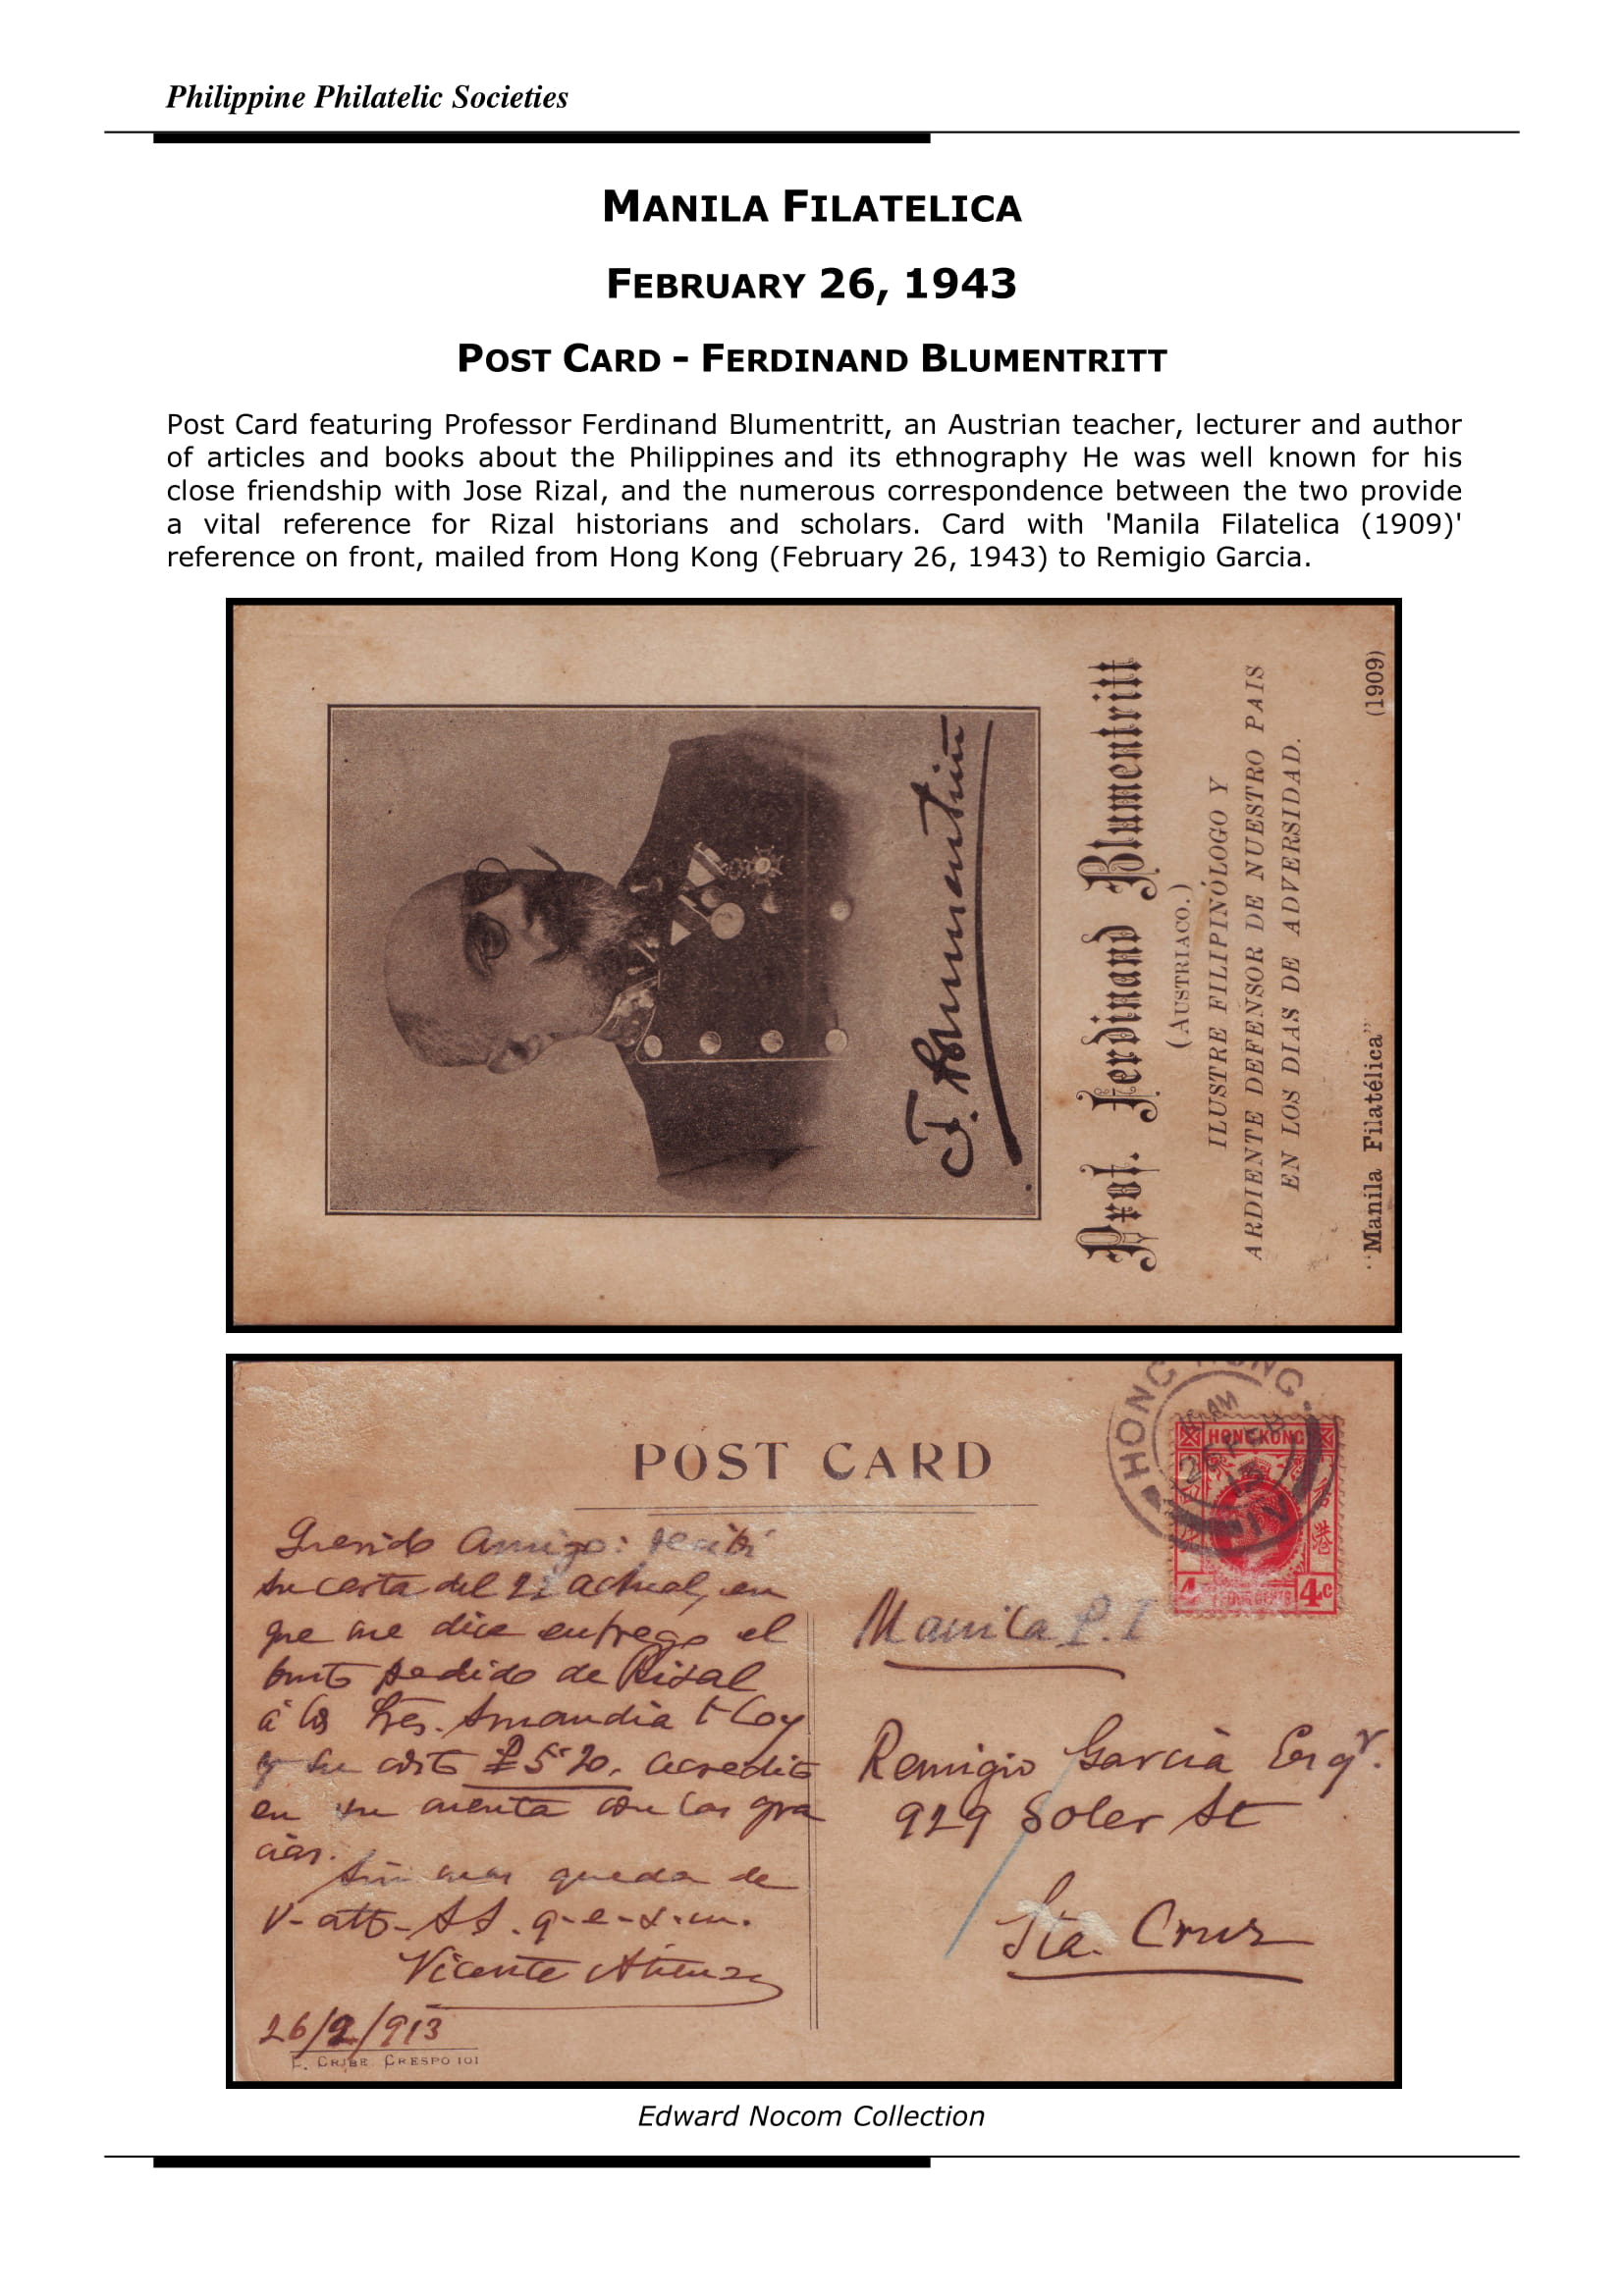 Philippine Philatelic Societies
MANILA FILATELICA
FEBRUARY 26, 1943
POST CARD - FERDINAND BLUMENTRITT
Post Card featuring Professor Ferdinand Blumentritt, an Austrian teacher, lecturer and author
of articles and books about the Philippines and its ethnography He was well known for his
close friendship with Jose Rizal, and the numerous correspondence between the two provide
a vital reference for Rizal historians and scholars. Card with 'Manila Filatelica (1909)'
reference on front, mailed from Hong Kong (February 26, 1943) to Remigio Garcia.
F. Blumentritt
Prof. Ferdinand Blumentritt
(AUSTRIACO.)
ILUSTRE FILIPINÓLOGO Y
ARDIENTE DEFENSOR DE NUESTRO PAIS
EN LOS DIAS DE ADVERSIDAD.
"Manila Filatélica" (1909)
POST CARD
HONG KONG
26 FE 13
HONG KONG
香
港
4 FOUR CENTS 4c
Querido Amigo: recibi
su carta del 22 actual, en
que me dice entrego el
busto pedido de Rizal
á los Sres. &Coy
y su costo ₤5.20. acredito
en su cuenta con las gra
cias.
Sin mas queda de
V- atto- SS. q-e-s.m.
Vicente
26/2/913
F. CRIBE CRESPO 101
Manila P.I
Remigio Garcia Esqr.
929 Soler St
Sta. Cruz
Edward Nocom Collection